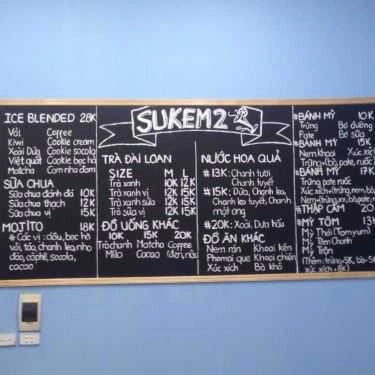 SUKEM2
ICE BLENDED 28K
Vải Coffee
Kiwi Cookie cream
Xoài Dứa Cookie socola
Việt quất Cookie bạc hà
Matcha
SỮA CHUA
Sữa chua đánh đá 10K
Sữa chua thạch 12K
Sữa chua vị 15K
MOJITO 18K
# Các vị: dâu, bạc hà
vải, táo, chanh leo, nho
đào, socola,
cacao
TRÀ ĐÀI LOAN
SIZE M L
Trà xanh 10K 12K
Trà xanh vị 12K 15K
Trà sữa 12K 15K
Trà sữa vị 12K 15K
ĐỒ UỐNG KHÁC
10K 15K 20K
Trà chanh Matcha Coffee
Milo Cacao (đen, nâu)
NƯỚC HOA QUẢ
#13K: Chanh tươi
Chanh tuyết
#15K: Dứa, Chanh leo,
Chanh leo tuyết, Chanh
mật ong
#20K: Xoài, Dưa hấu
ĐỒ ĂN KHÁC
Nem rán Khoai kén
Phomai que Khoai chiên
Xúc xích Bò khô
#BÁNH MÌ 10K
Trứng Bơ đường
Pate Bơ sữa
#BÁNH MÌ 15K
Nem khoai Xúc xích
Trứng+(bò, pate, ruốc)
#BÁNH MÌ 17K
Trứng, pate, ruốc
#THẬP CẨM 20K
#MỲ TÔM 13K
Mỳ Thái (Tomyum)
Mỳ
Mỳ